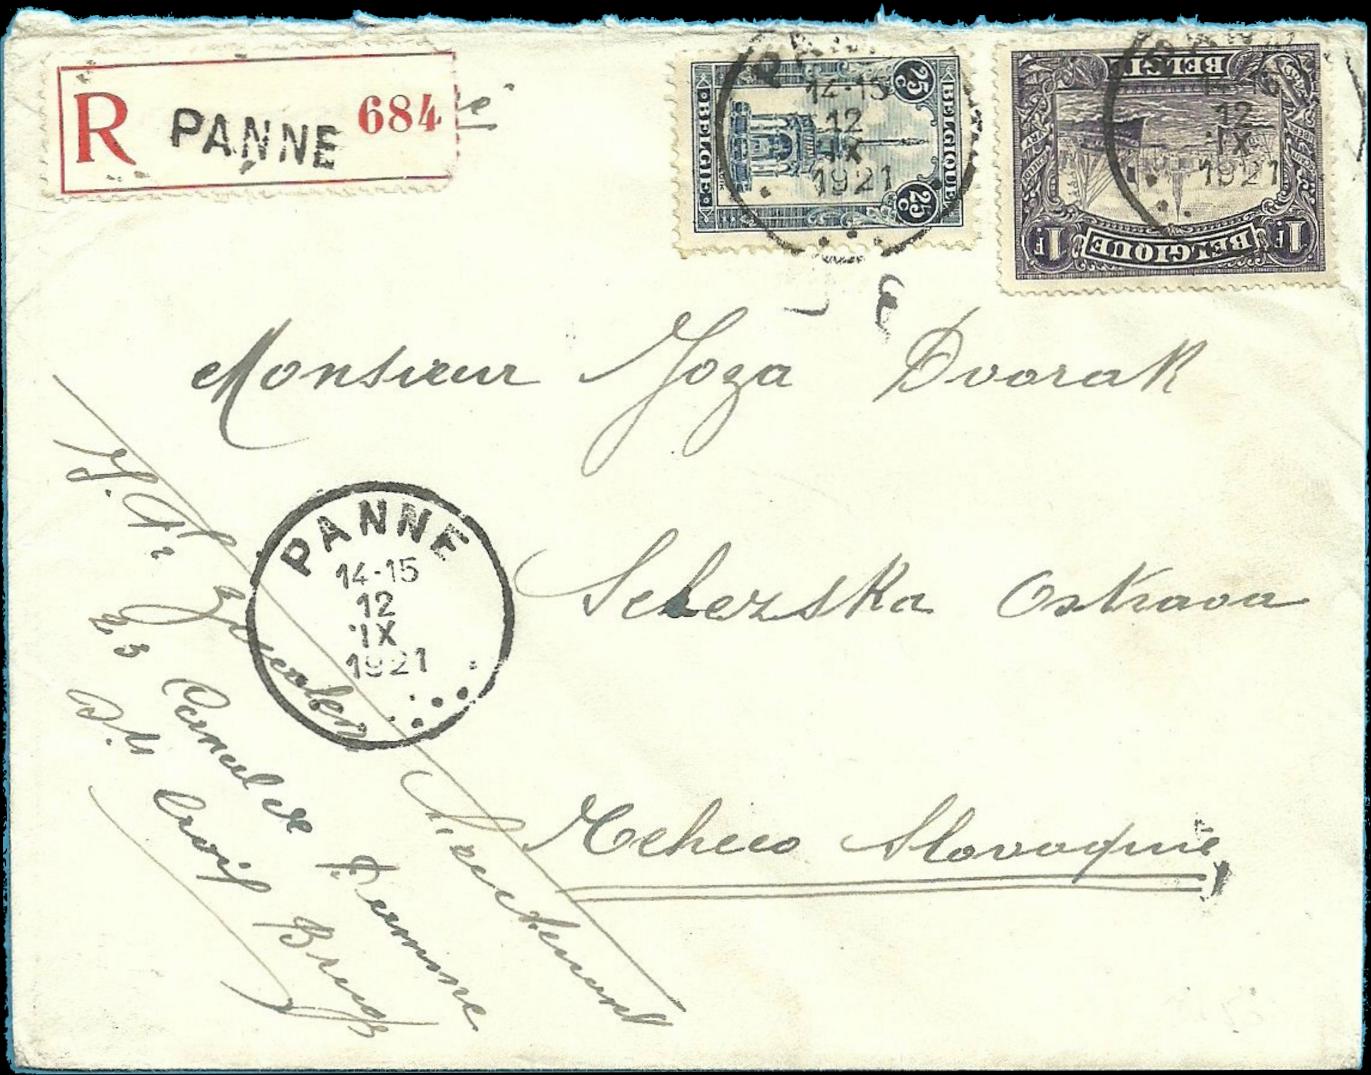 R PANNE 684
25 C BELGIQUE
BELGIE 25 C
PANNE
14-15
12
IX
1921
BELGIE
1F BELGIQUE 1F
14-15
12
IX
1921
Monsieur Joza Dvorak
PANNE
14-15
12
IX
1921
Selezska Ostrava
Tcheco Slovaquie
23 Canal de
St Croix Bruges